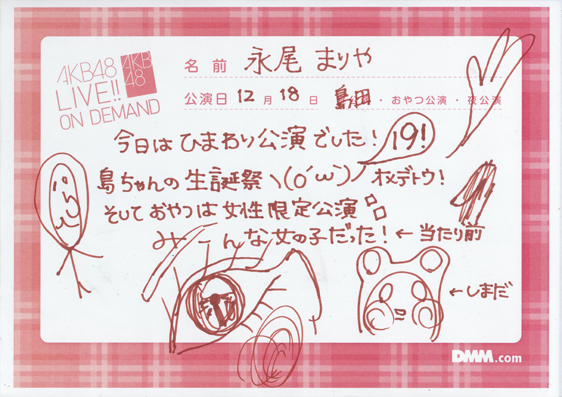 AKB48
LIVE!!
ON DEMAND
AKB
48
名前 永尾 まりや
公演日 12月18日 島田・おやつ公演・夜公演
今日はひまわり公演でした! 19!
島ちゃんの生誕祭ヽ(o´ω`)ノオメデトウ!
そしておやつは女性限定公演
みーんな女の子だった!←当たり前
←しまだ
DMM.com